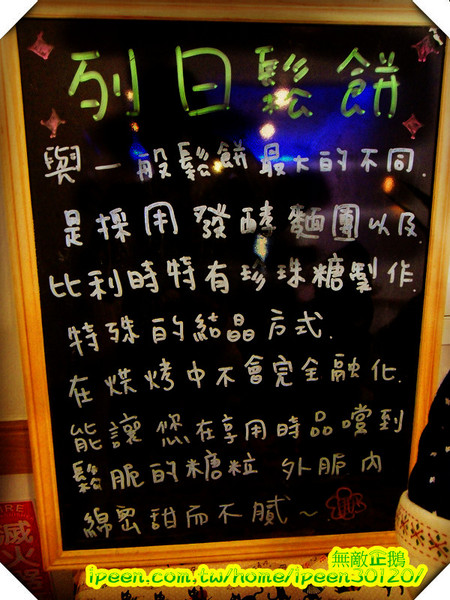 列日鬆餅
與一般鬆餅最大的不同.
是採用發酵麵團以及.
比利時特有珍珠糖製作.
特殊的結晶方式.
在烘烤中不會完全融化.
能讓您在享用時品嚐到
鬆脆的糖粒 外脆內
綿密甜而不膩~
滅火
無敵企鵝
ipeen.com.tw/home/ipeen30120/